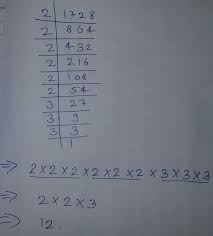 2 | 1728
2 | 864
2 | 432
2 | 216
2 | 108
2 | 54
3 | 27
3 | 9
3 | 3
1
⇒ 2×2×2×2×2×2×3×3×3
⇒ 2×2×3
⇒ 12.